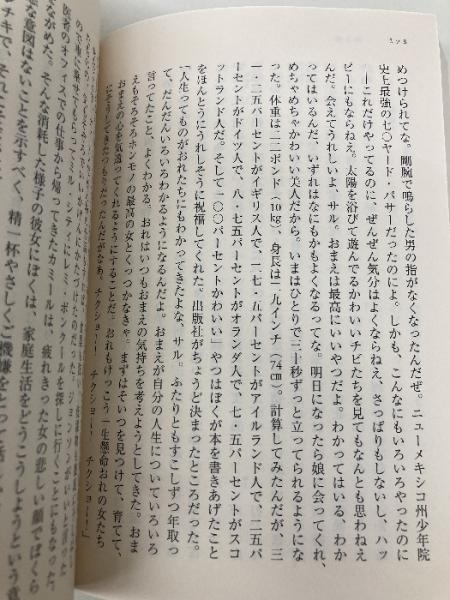 めつけられてな。剛腕で鳴らした男の指がなくなったんだぜ。ニューメキシコ州少年院
史上最強の七〇ヤード・パサーだったのによ。しかも、こんなにもいろいろやったのに
――これだけやってるのに、ぜんぜん気分はよくならねえ、さっぱりもしないし、ハッ
ピーにもならねえ。太陽を浴びて遊んでるかわいいチビたちを見てもなんとも思わねえ
んだ。会えてうれしいよ、サル。おまえは最高にいいやつだよ。わかってはいる、わか
ってはいるんだ、いずれはなにもかもよくなるってな。明日になったら娘に会ってくれ、
めちゃめちゃかわいい美人だから。いまはひとりで三十秒ずっと立ってられるようにな
った。体重は二二ポンド(10kg)、身長は二九インチ(74cm)。計算してみたんだが、三
一・二五パーセントがイギリス人で、二七・五パーセントがアイルランド人で、二五パ
ーセントがドイツ人で、八・七五パーセントがオランダ人で、七・五パーセントがスコ
ットランド人だ。そして一〇〇パーセントかわいい」やつはぼくが本を書きあげたこと
をほんとうにうれしそうに祝福してくれた。出版社がちょうど決まったところだった。
「人生ってものがおれたちにもわかってきたよな、サル。ふたりともすこしずつ年取っ
て、だんだんいろいろわかるようになるんだよ。おまえが自分の人生についていろいろ
言ってたこと、よくわかる。おれはいつもおまえの気持ちを考えようとしてきた。おま
えもそろそろホンモノの最高の女とくっつかなきゃ。まずはそいつを見つけて、育てて、
おまえの心を気遣ってくれるようにすることだ。おれもけっこう一生懸命おれの女たち
にそうしてきたつもりだったんだがなあ。チクショー! チクショー! チクショー!」
医者のオフィスでの仕事から帰ってきたカミールは、疲れきった女の悲しい顔でぼくら
をながめた。そんな消耗した様子の彼女にぼくは、家庭生活をどうこうしようという意